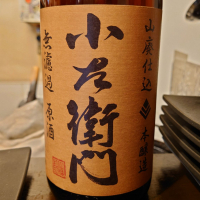 山廃仕込 本醸造
小左衛門
無濾過 原酒